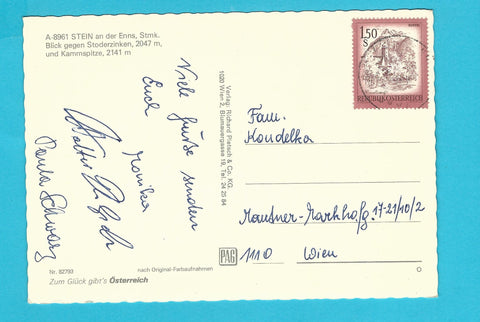 A-8961 STEIN an der Enns, Stmk.
Blick gegen Stoderzinken, 2047 m,
und Kammspitze, 2141 m
Viele Grüße senden
Euch Monika
Walter
Paula Schwarz
Verlag: Richard Pietsch & Co. KG.
1020 Wien 2, Blumauergasse 19, Tel. 24 25 84
1,50
S
REPUBLIK ÖSTERREICH
Fam.
Koudelka
Mautner-Markhofg. 17-21/10/2
1110 Wien
PAG
Nr. 82793
nach Original-Farbaufnahmen
Zum Glück gibt's Österreich